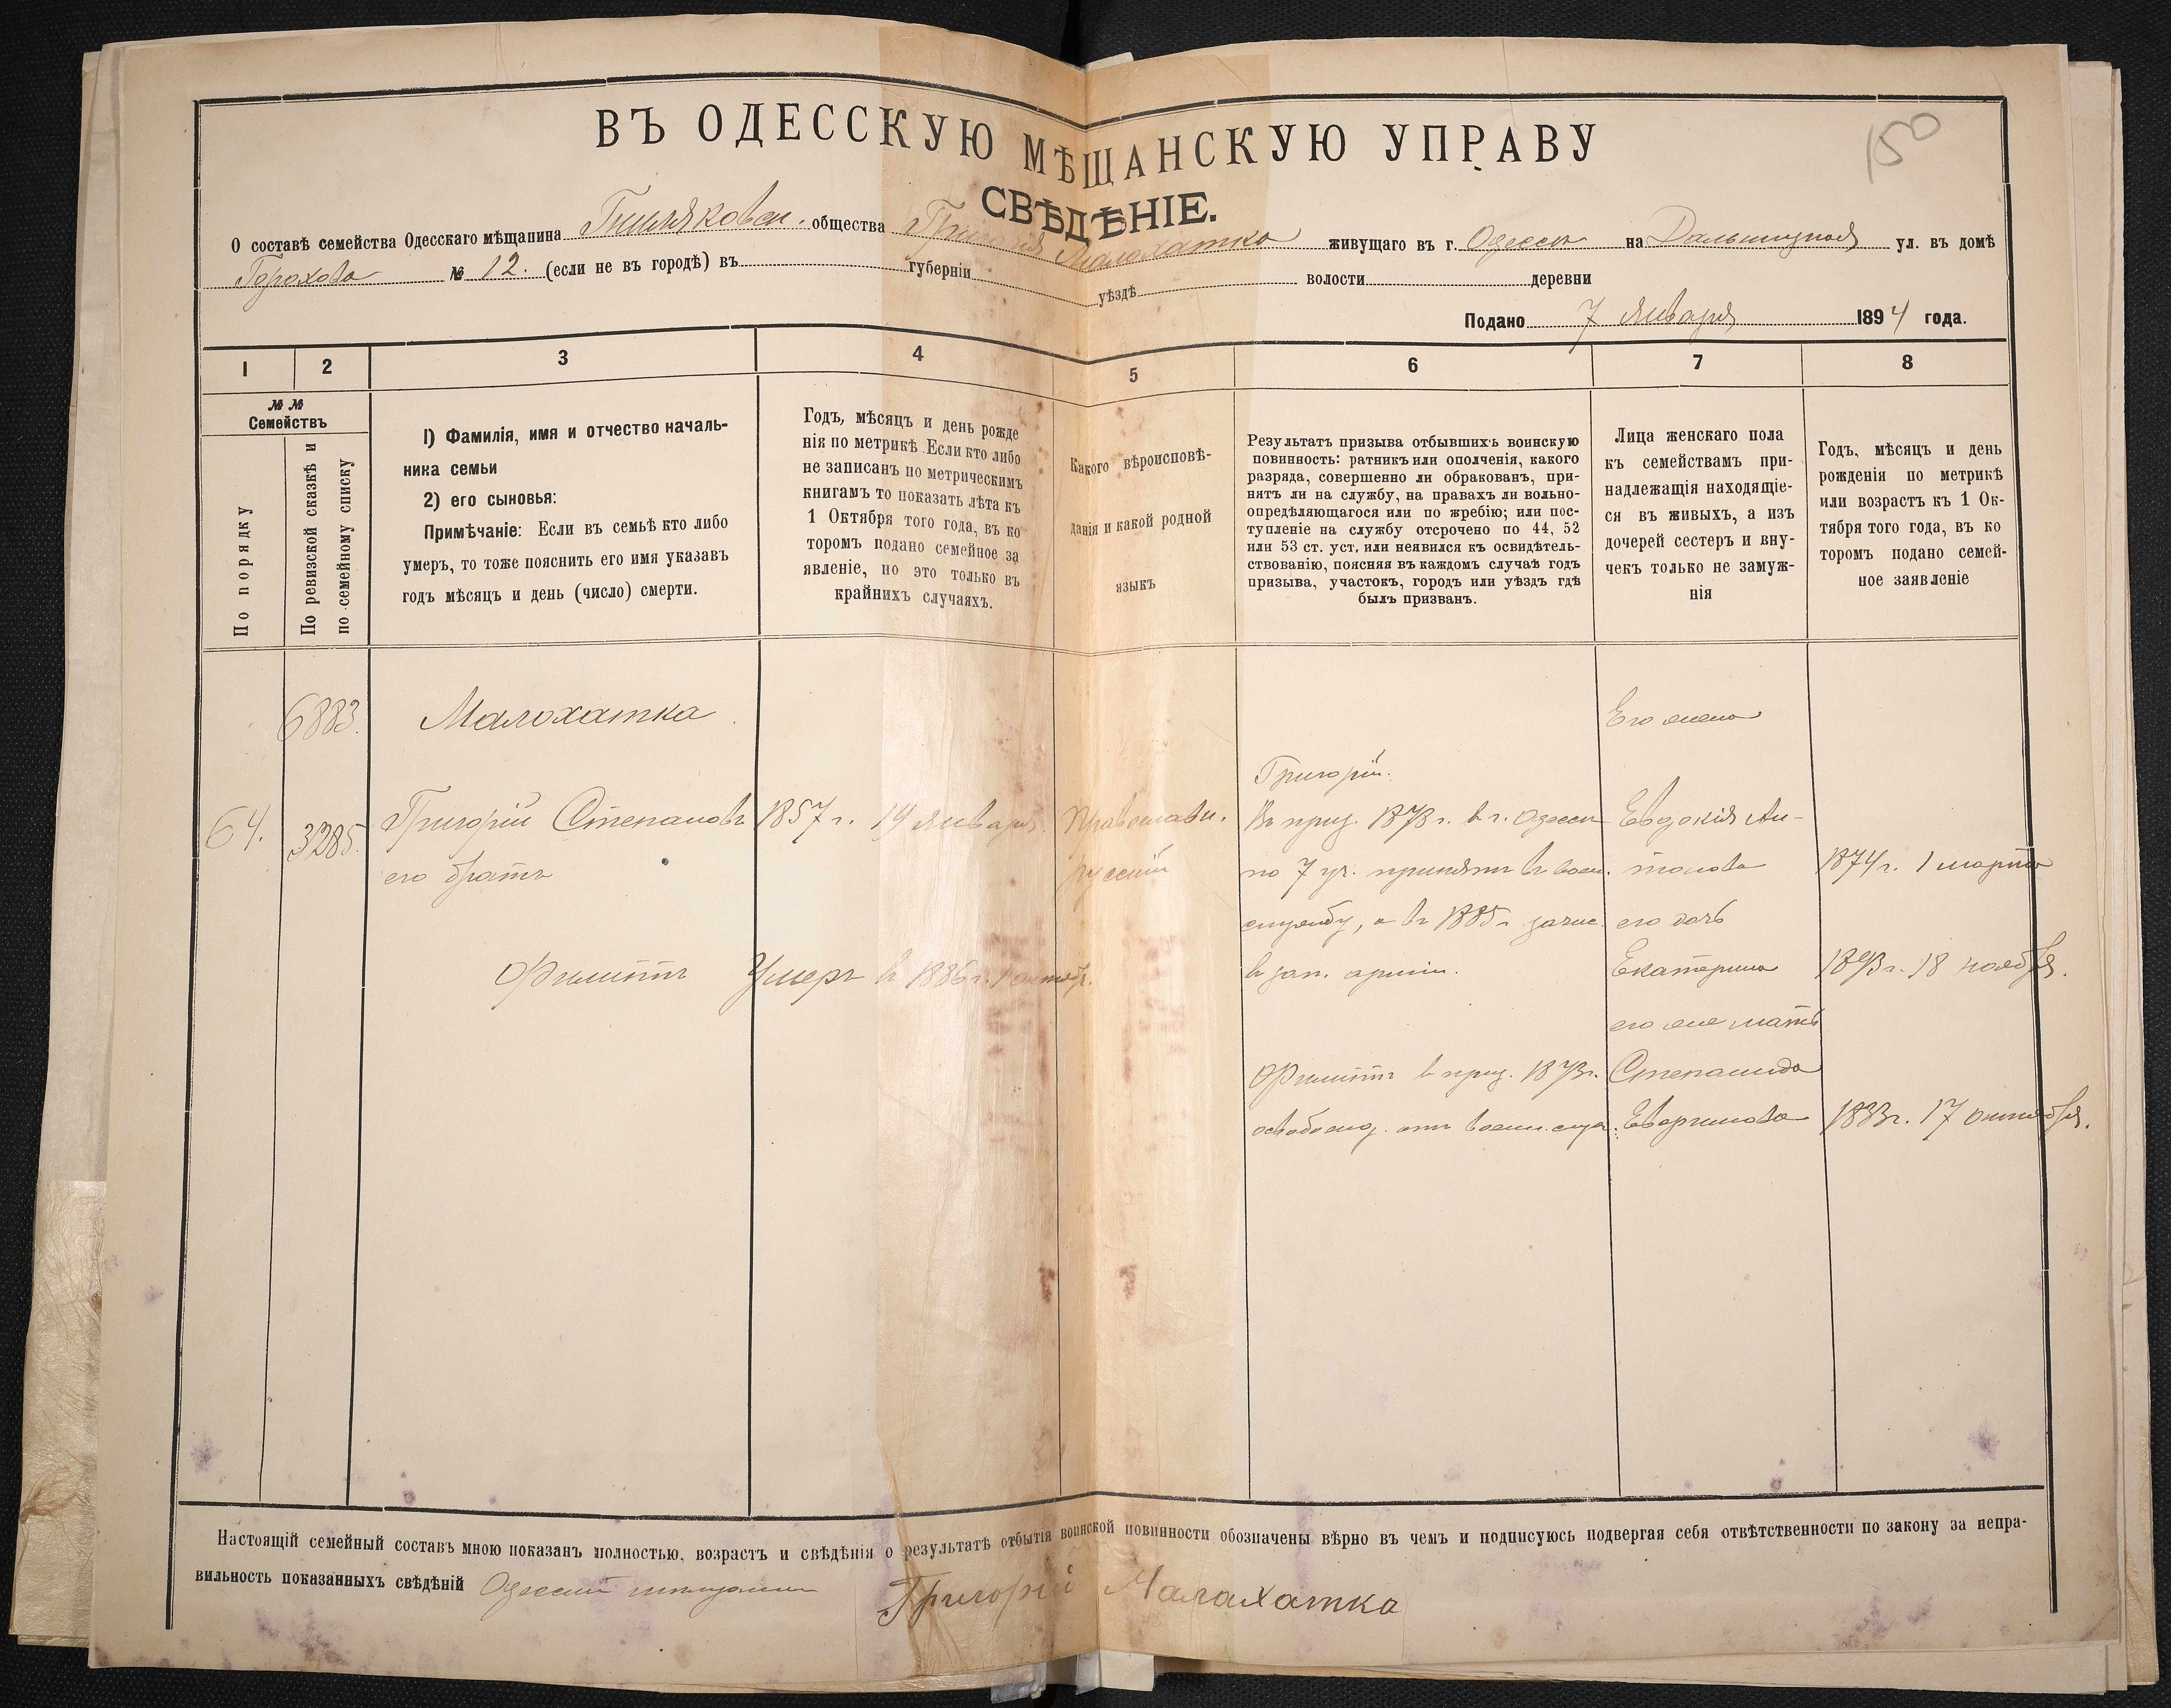 150
ВЪ ОДЕССКУЮ МѢЩАНСКУЮ УПРАВУ
СВѢДѢНІЕ.
О составѣ семейства Одесскаго мѣщанина общества Григорія Малохатка живущаго въ г. Одессѣ на Дальницкой ул. въ домѣ
Горохова № 12. (если не въ городѣ) въ губерніи уѣздѣ волости деревни
Подано 7 Января 1894 года.
1 2 3 4 5 6 7 8
№ №
Семействъ
По порядку
По ревизской сказкѣ и
по семейному списку
1) Фамилія, имя и отчество началь-
ника семьи
2) его сыновья:
Примѣчаніе: Если въ семьѣ кто либо
умеръ, то тоже пояснить его имя указавъ
годъ мѣсяцъ и день (число) смерти.
Годъ, мѣсяцъ и день рожде
нія по метрикѣ. Если кто либо
не записанъ по метрическимъ
книгамъ то показать лѣта къ
1 Октября того года, въ ко
торомъ подано семейное за
явленіе, но это только въ
крайнихъ случаяхъ.
Какого вѣроисповѣ-
данія и какой родной
языкъ
Результатъ призыва отбывшихъ воинскую
повинность: ратникъ или ополченія, какого
разряда, совершенно ли обракованъ, при-
нятъ ли на службу, на правахъ ли вольно-
опредѣляющагося или по жребію; или пос-
тупленіе на службу отсрочено по 44, 52
или 53 ст. уст, или неявился къ освидѣтель-
ствованію, поясняя въ каждомъ случаѣ годъ
призыва, участокъ, городъ или уѣздъ гдѣ
былъ призванъ.
Лица женскаго пола
къ семействамъ при-
надлежащія находящіе-
ся въ живыхъ, а изъ
дочерей сестеръ и вну-
чекъ только не замуж-
нія
Годъ, мѣсяцъ и день
рожденія по метрикѣ
или возрастъ къ 1 Ок-
тября того года, въ ко
торомъ подано семей-
ное заявленіе
6883.
Малохатка
Его жена
64.
3285.
Григорій Степановъ
1857 г. 19 января.
Православн.
русскій
его братъ
Филиппъ
Умеръ въ 1886 г. 1 октябр.
Григорій.
Въ приз. 1878 г. в г. Одессѣ
по 7 уч. принятъ въ воен.
службу, а въ 1885 г. зачис.
въ зап. арміи.
Филиппъ в приз. 1873 г.
освобожд. отъ воинс. слу.
Евдокія Ан-
тонова
1874 г. 1 марта
его дочь
Екатерина
1893 г. 18 ноября.
его же мать
Степанида
1833 г. 17 октября.
Настоящій семейный составъ мною показанъ полностью, возрастъ и свѣдѣнія о результатѣ отбытія воинской повинности обозначены вѣрно въ чемъ и подписуюсь подвергая себя отвѣтственности по закону за непра-
вильность показанныхъ свѣдѣній Одесскій мѣщанинъ Григорій Малахатка